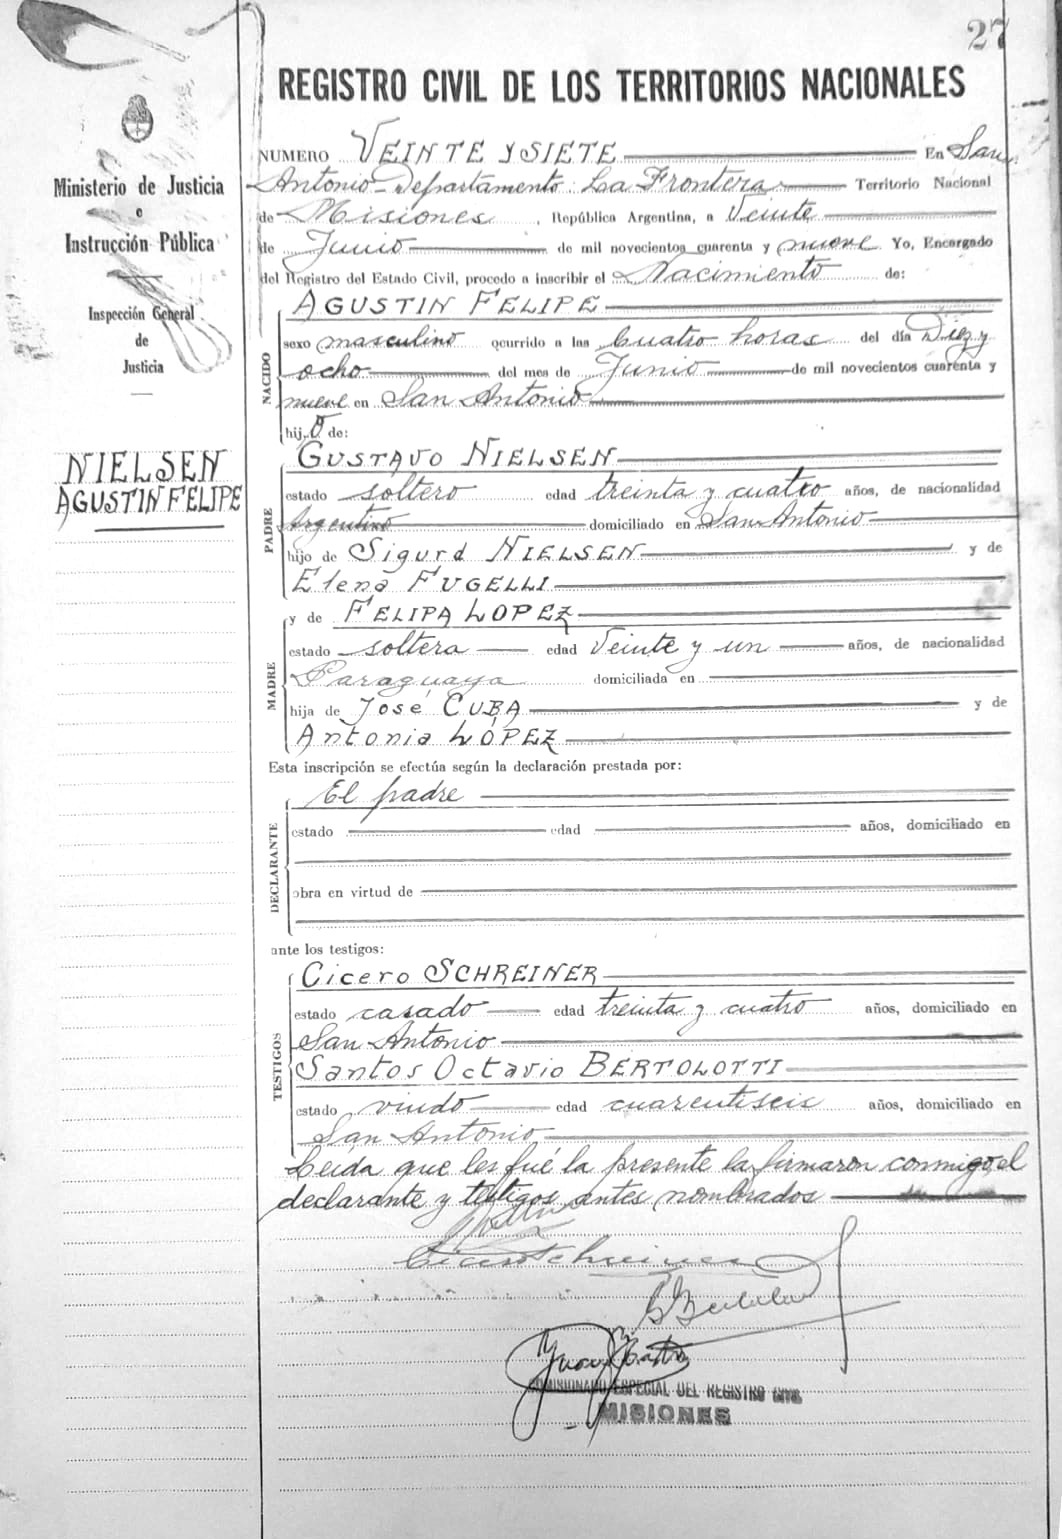 27
REGISTRO CIVIL DE LOS TERRITORIOS NACIONALES
Ministerio de Justicia
e
Instrucción Pública
Inspección General
de
Justicia
NIELSEN
AGUSTIN FELIPE
NUMERO VEINTE Y SIETE En San
Antonio - Departamento: La Frontera Territorio Nacional
de Misiones, República Argentina, a Veinte
de Junio de mil novecientos cuarenta y nueve Yo, Encargado
del Registro del Estado Civil, procedo a inscribir el Nacimiento de:
NACIDO
AGUSTIN FELIPE
sexo masculino ocurrido a las Cuatro horas del día Diez y
ocho del mes de Junio de mil novecientos cuarenta y
nueve en San Antonio
hijo de:
PADRE
GUSTAVO NIELSEN
estado soltero edad treinta y cuatro años, de nacionalidad
Argentino domiciliado en San Antonio
hijo de Sigurd NIELSEN y de
Elena FUGELLI
MADRE
y de FELIPA LOPEZ
estado soltera edad Veinte y un años, de nacionalidad
Paraguaya domiciliada en
hija de José CUBA y de
Antonia LÓPEZ
Esta inscripción se efectúa según la declaración prestada por:
DECLARANTE
El padre
estado edad años, domiciliado en
obra en virtud de
ante los testigos:
TESTIGOS
Cicero SCHREINER
estado casado edad treinta y cuatro años, domiciliado en
San Antonio
Santos Octavio BERTOLOTTI
estado viudo edad cuarentiseis años, domiciliado en
San Antonio
Leída que les fué la presente la firmaron conmigo, el
declarante y testigos antes nombrados
COMISIONADO ESPECIAL DEL REGISTRO CIVIL
MISIONES